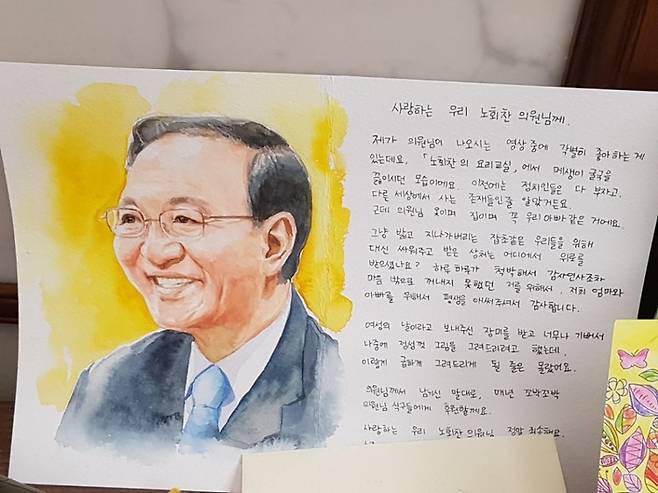 사랑하는 우리 노회찬 의원님께.
제가 의원님이 나오시는 영상 중에 각별히 좋아하는 게
있는데요, 「노회찬의 요리교실」에서 매생이 굴국을
끓이시던 모습이에요. 이전에는 정치인들은 다 부자고,
다른 세상에서 사는 존재들인줄 알았거든요.
근데 의원님 옷이며 집이며 꼭 우리아빠같은 거에요.
그냥 밟고 지나가버리는 잡초같은 우리들을 위해
대신 싸워주고 받은 상처는 어디에서 위로를
받으셨나요? 하루 하루가 척박해서 감사인사조차
마음 밖으로 꺼내지 못했던 저를 위해서, 저희 엄마와
아빠를 위해서 평생을 애써주셔서 감사합니다.
여성의 날이라고 보내주신 장미를 받고 너무나 기뻐서
나중에 정성껏 그림을 그려드리려고 했는데,
이렇게 급하게 그려드리게 될 줄은 몰랐어요.
의원님께서 남기신 말대로, 매년 꼬박꼬박
의원님 식구들에게 후원할게요.
사랑하는 우리 노회찬 의원님 정말 죄송해요.